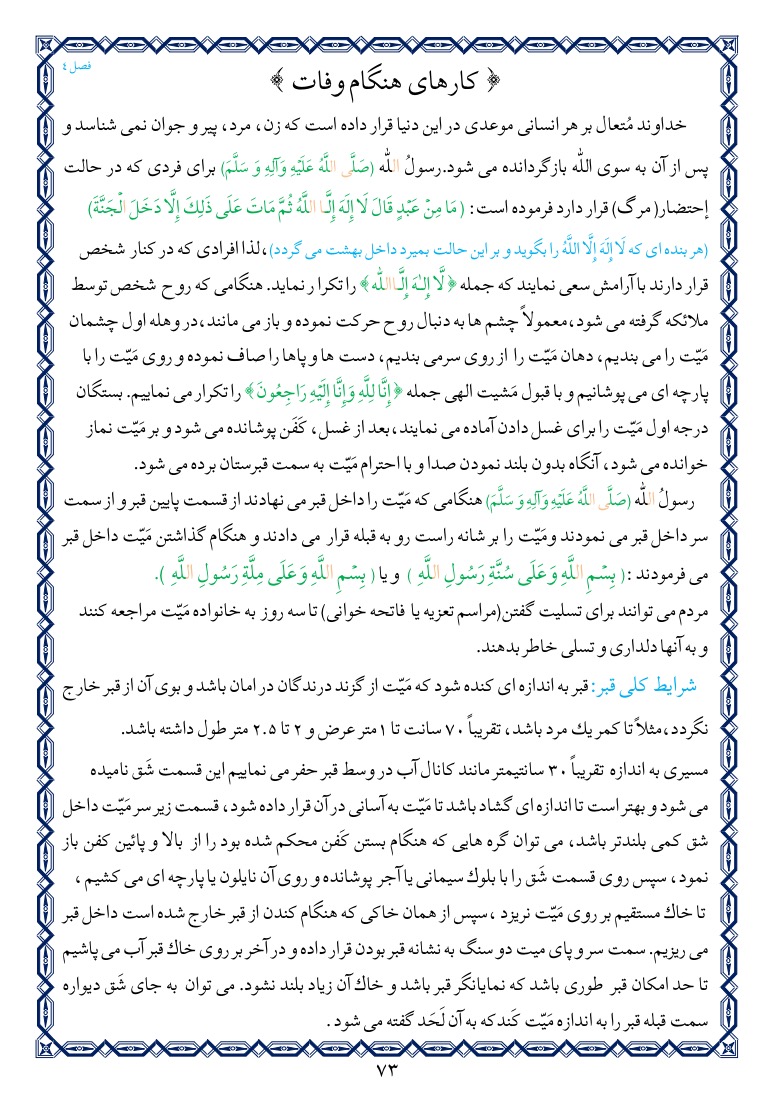 فصل ٤
﴿ کارهای هنگام وفات ﴾
خداوند مُتعال بر هر انسانی موعدی در این دنیا قرار داده است که زن، مرد، پیر و جوان نمی شناسد و
پس از آن به سوی الله بازگردانده می شود.رسولُ الله (صَلَّی اللَّهُ عَلَیْهِ وَآلِهِ وَ سَلَّمَ) برای فردی که در حالت
إحتضار( مرگ) قرار دارد فرموده است: ( مَا مِنْ عَبْدٍ قَالَ لَا إِلَهَ إِلَّا اللَّهُ ثُمَّ مَاتَ عَلَی ذَلِكَ إِلَّا دَخَلَ الْجَنَّةَ)
(هر بنده ای که لَا إِلَهَ إِلَّا اللَّهُ را بگوید و بر این حالت بمیرد داخل بهشت می گردد)،لذا افرادی که در کنار شخص
قرار دارند با آرامش سعی نمایند که جمله ﴿ لَّا إِلـٰهَ إِلَّا الله ﴾ را تکرا ر نماید. هنگامی که روح شخص توسط
ملائکه گرفته می شود،معمولاً چشم ها به دنبال روح حرکت نموده و باز می مانند،در وهله اول چشمان
مَیّت را می بندیم، دهان مَیّت را از روی سرمی بندیم، دست ها و پاها را صاف نموده و روی مَیّت را با
پارچه ای می پوشانیم و با قبول مَشیت الهی جمله ﴿ إِنَّا لِلَّهِ وَإِنَّا إِلَیْهِ رَاجِعُونَ ﴾ را تکرار می نماییم. بستگان
درجه اول مَیّت را برای غسل دادن آماده می نمایند،بعد از غسل، کَفَن پوشانده می شود و بر مَیّت نماز
خوانده می شود، آنگاه بدون بلند نمودن صدا و با احترام مَیّت به سمت قبرستان برده می شود.
رسولُ الله (صَلَّی اللَّهُ عَلَیْهِ وَآلِهِ وَ سَلَّمَ) هنگامی که مَیّت را داخل قبر می نهادند از قسمت پایین قبر و از سمت
سر داخل قبر می نمودند ومَیّت را بر شانه راست رو به قبله قرار می دادند و هنگام گذاشتن مَیّت داخل قبر
می فرمودند :( بِسْمِ اللَّهِ وَعَلَی سُنَّةِ رَسُولِ اللَّهِ ) و یا ( بِسْمِ اللَّهِ وَعَلَی مِلَّةِ رَسُولِ اللَّهِ ).
مردم می توانند برای تسلیت گفتن(مراسم تعزیه یا فاتحه خوانی) تا سه روز به خانواده مَیّت مراجعه کنند
و به آنها دلداری و تسلی خاطر بدهند.
شرایط کلی قبر: قبر به اندازه ای کنده شود که مَیّت از گزند درندگان در امان باشد و بوی آن از قبر خارج
نگردد،مثلاً تا کمر یك مرد باشد، تقریباً ۷۰ سانت تا ۱متر عرض و ۲ تا ۲.۵ متر طول داشته باشد.
مسیری به اندازه تقریباً ۳۰ سانتیمتر مانند کانال آب در وسط قبر حفر می نماییم این قسمت شَق نامیده
می شود و بهتر است تا اندازه ای گشاد باشد تا مَیّت به آسانی در آن قرار داده شود، قسمت زیر سر مَیّت داخل
شق کمی بلندتر باشد، می توان گره هایی که هنگام بستن کَفن محکم شده بود را از بالا و پائین کفن باز
نمود، سپس روی قسمت شَق را با بلوك سیمانی یا آجر پوشانده و روی آن نایلون یا پارچه ای می کشیم ،
تا خاك مستقیم بر روی مَیّت نریزد ،سپس از همان خاکی که هنگام کندن از قبر خارج شده است داخل قبر
می ریزیم. سمت سر و پای میت دو سنگ به نشانه قبر بودن قرار داده و در آخر بر روی خاك قبر آب می پاشیم
تا حد امکان قبر طوری باشد که نمایانگر قبر باشد و خاك آن زیاد بلند نشود. می توان به جای شَق دیواره
سمت قبله قبر را به اندازه مَیّت کَندکه به آن لَحَد گفته می شود .
۷۳